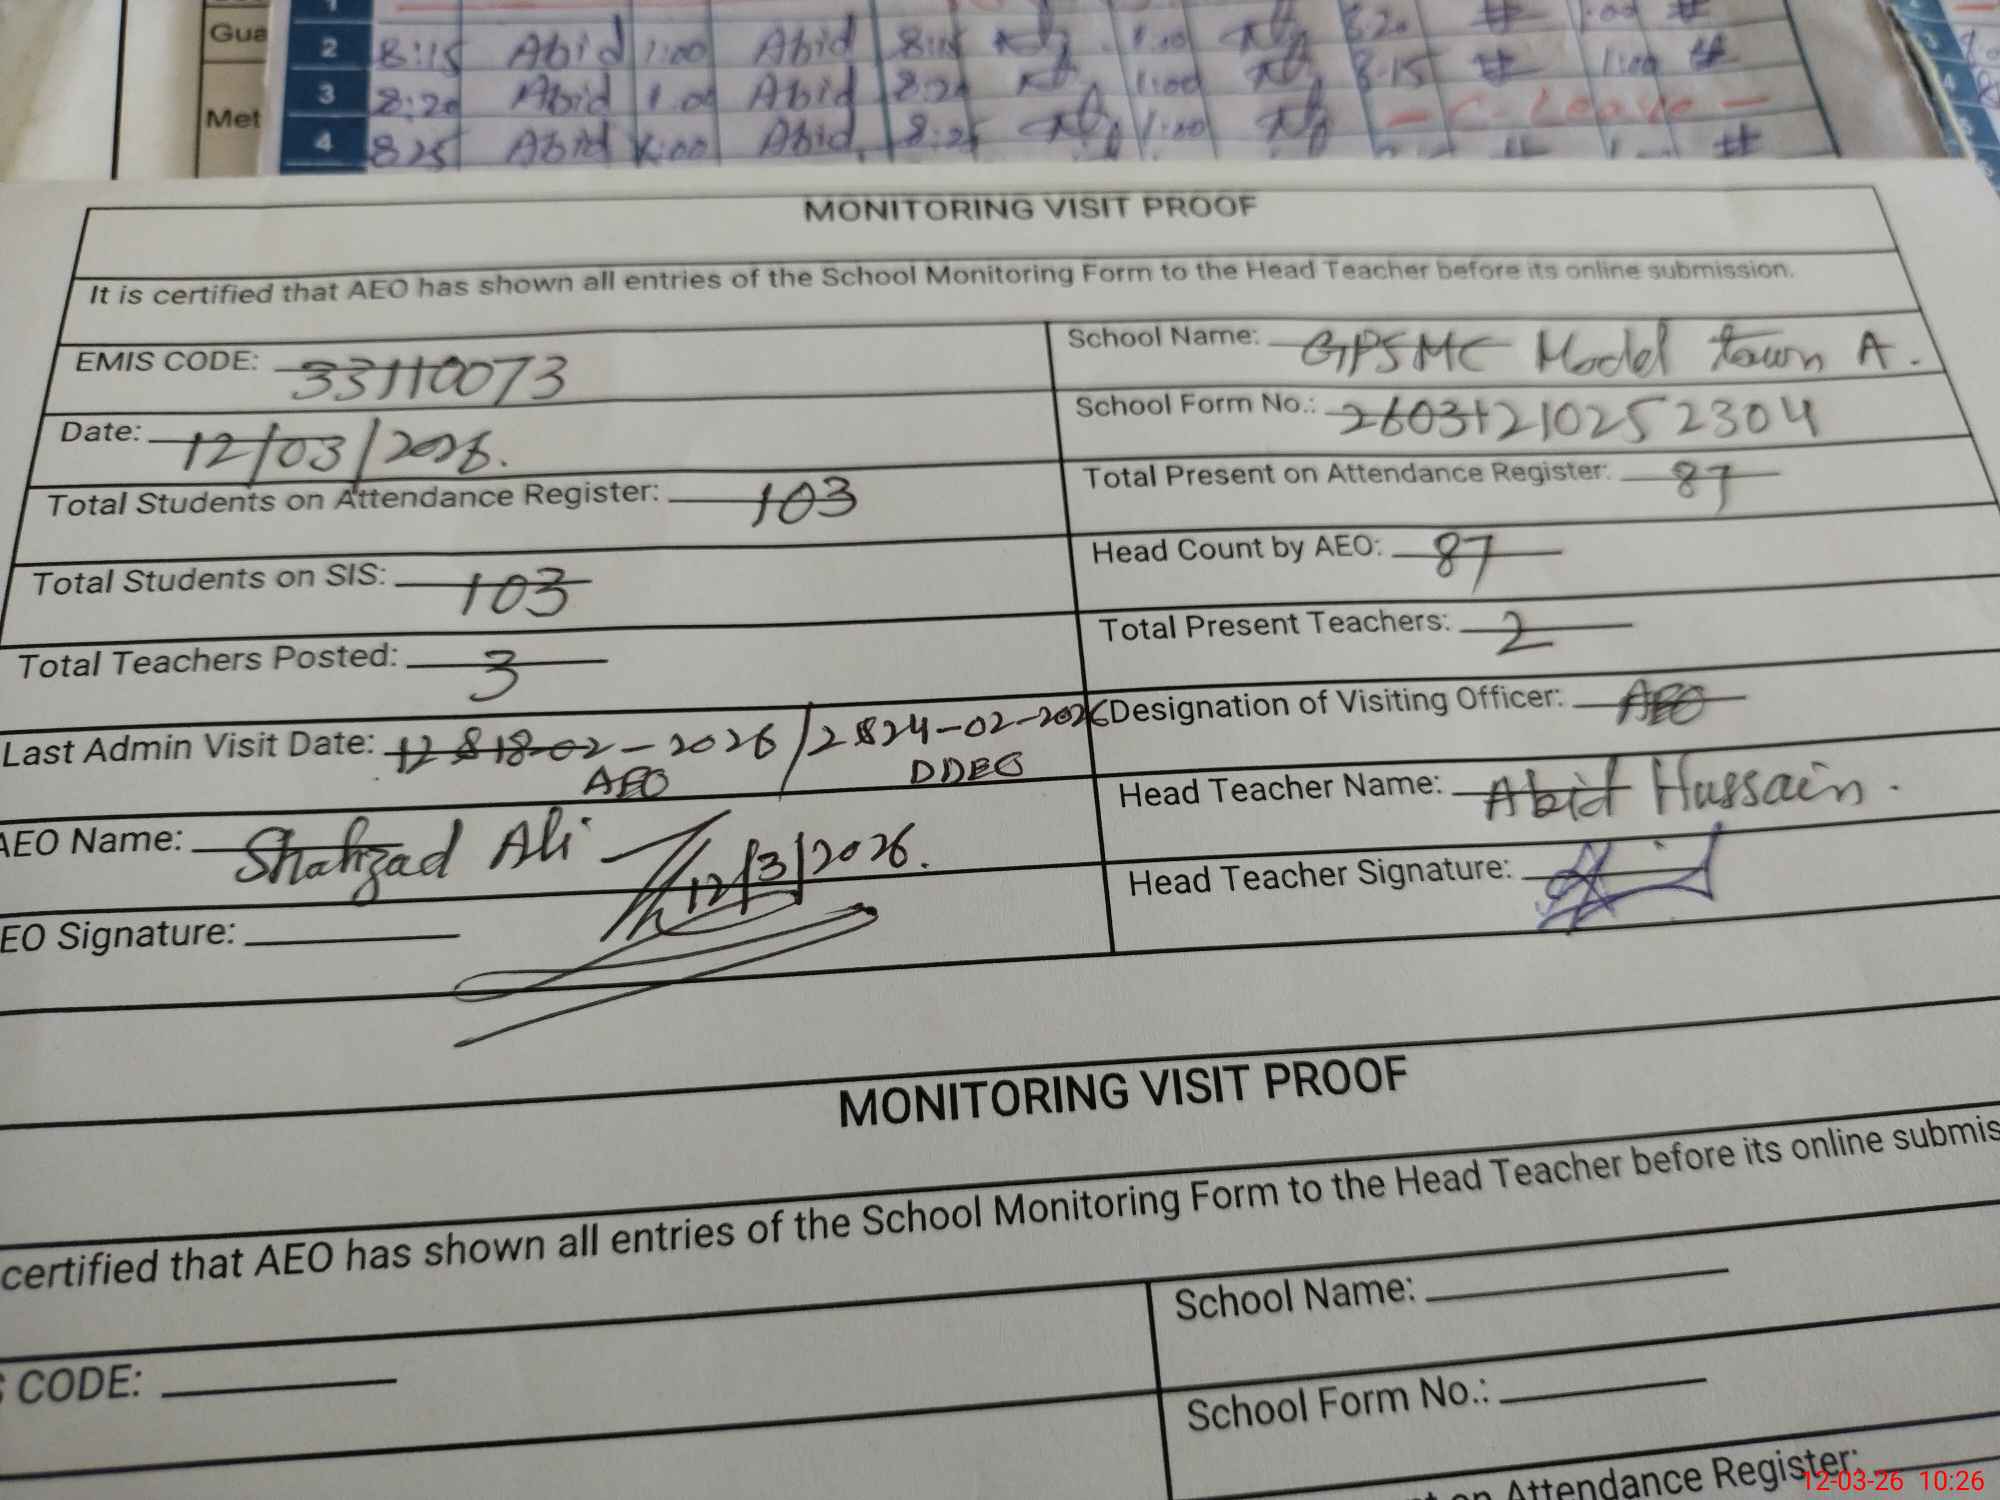 Gua
Met
2 8:15 Abid 1:00 Abid 8:15 1:00 8:20 # 1:00 #
3 8:20 Abid 1:00 Abid 8:20 1:00 8:15 # 1:00 #
4 825 Abid 1:00 Abid 8:25 1:00 - C-Leave -
MONITORING VISIT PROOF
It is certified that AEO has shown all entries of the School Monitoring Form to the Head Teacher before its online submission.
EMIS CODE: 33110073
School Name: GPSMC Model town A.
Date: 12/03/2026.
School Form No.: 260312102522304
Total Students on Attendance Register: 103
Total Present on Attendance Register: 87
Total Students on SIS: 103
Head Count by AEO: 87
Total Teachers Posted: 3
Total Present Teachers: 2
Last Admin Visit Date: 18-02-2026 / 24-02-2026
AEO DDEO
Designation of Visiting Officer: AEO
AEO Name: Shahzad Ali
12/3/2026.
Head Teacher Name: Abid Hussain.
EO Signature:
Head Teacher Signature:
MONITORING VISIT PROOF
certified that AEO has shown all entries of the School Monitoring Form to the Head Teacher before its online submis
CODE:
School Name:
School Form No.:
on Attendance Register:
12-03-26 10:26